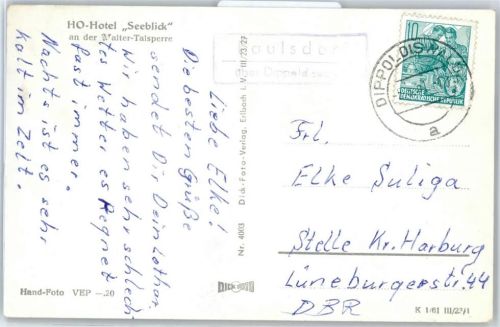 HO-Hotel „Seeblick"
an der Malter-Talsperre
Liebe Elke!
Die besten Grüße
sendet Dir Dein Lothar.
Wir haben sehr schlech
tes Wetter es Regnet
fast immer.
Nachts ist es sehr
kalt im Zelt.
Hand-Foto VEP —.20
Nr. 4003 Dick-Foto-Verlag, Erlbach i. V. III/23/27
DICK FOTO
Paulsdorf
über Dippoldiswalde
DIPPOLDISWALDE
a
10
DEUTSCHE
DEMOKRATISCHE REPUBLIK
Frl.
Elke Suliga
Stelle Kr. Harburg
Lüneburgerstr. 44
DBR
K 1/61 III/23/1